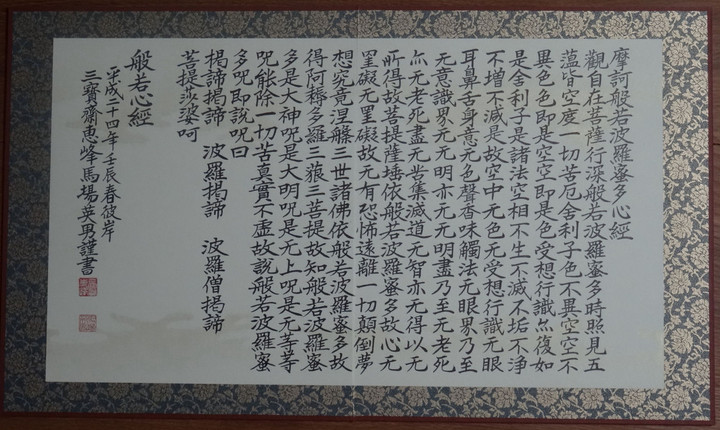 摩訶般若波羅蜜多心經
觀自在菩薩行深般若波羅蜜多時照見五
蘊皆空度一切苦厄舍利子色不異空空不
異色色即是空空即是色受想行識亦復如
是舍利子是諸法空相不生不滅不垢不淨
不增不減是故空中无色无受想行識无眼
耳鼻舌身意无色聲香味觸法无眼界乃至
无意識界无无明亦无无明盡乃至无老死
亦无老死盡无苦集滅道无智亦无得以无
所得故菩提薩埵依般若波羅蜜多故心无
罣礙无罣礙故无有恐怖遠離一切顛倒夢
想究竟涅槃三世諸佛依般若波羅蜜多故
得阿耨多羅三藐三菩提故知般若波羅蜜
多是大神呪是大明呪是无上呪是无等等
呪能除一切苦真實不虛故說般若波羅蜜
多呪即說呪曰
揭諦揭諦 波羅揭諦 波羅僧揭諦
菩提莎婆呵
般若心經
平成二十四年壬辰春彼岸
三寶齋恵峰馬場英男謹書